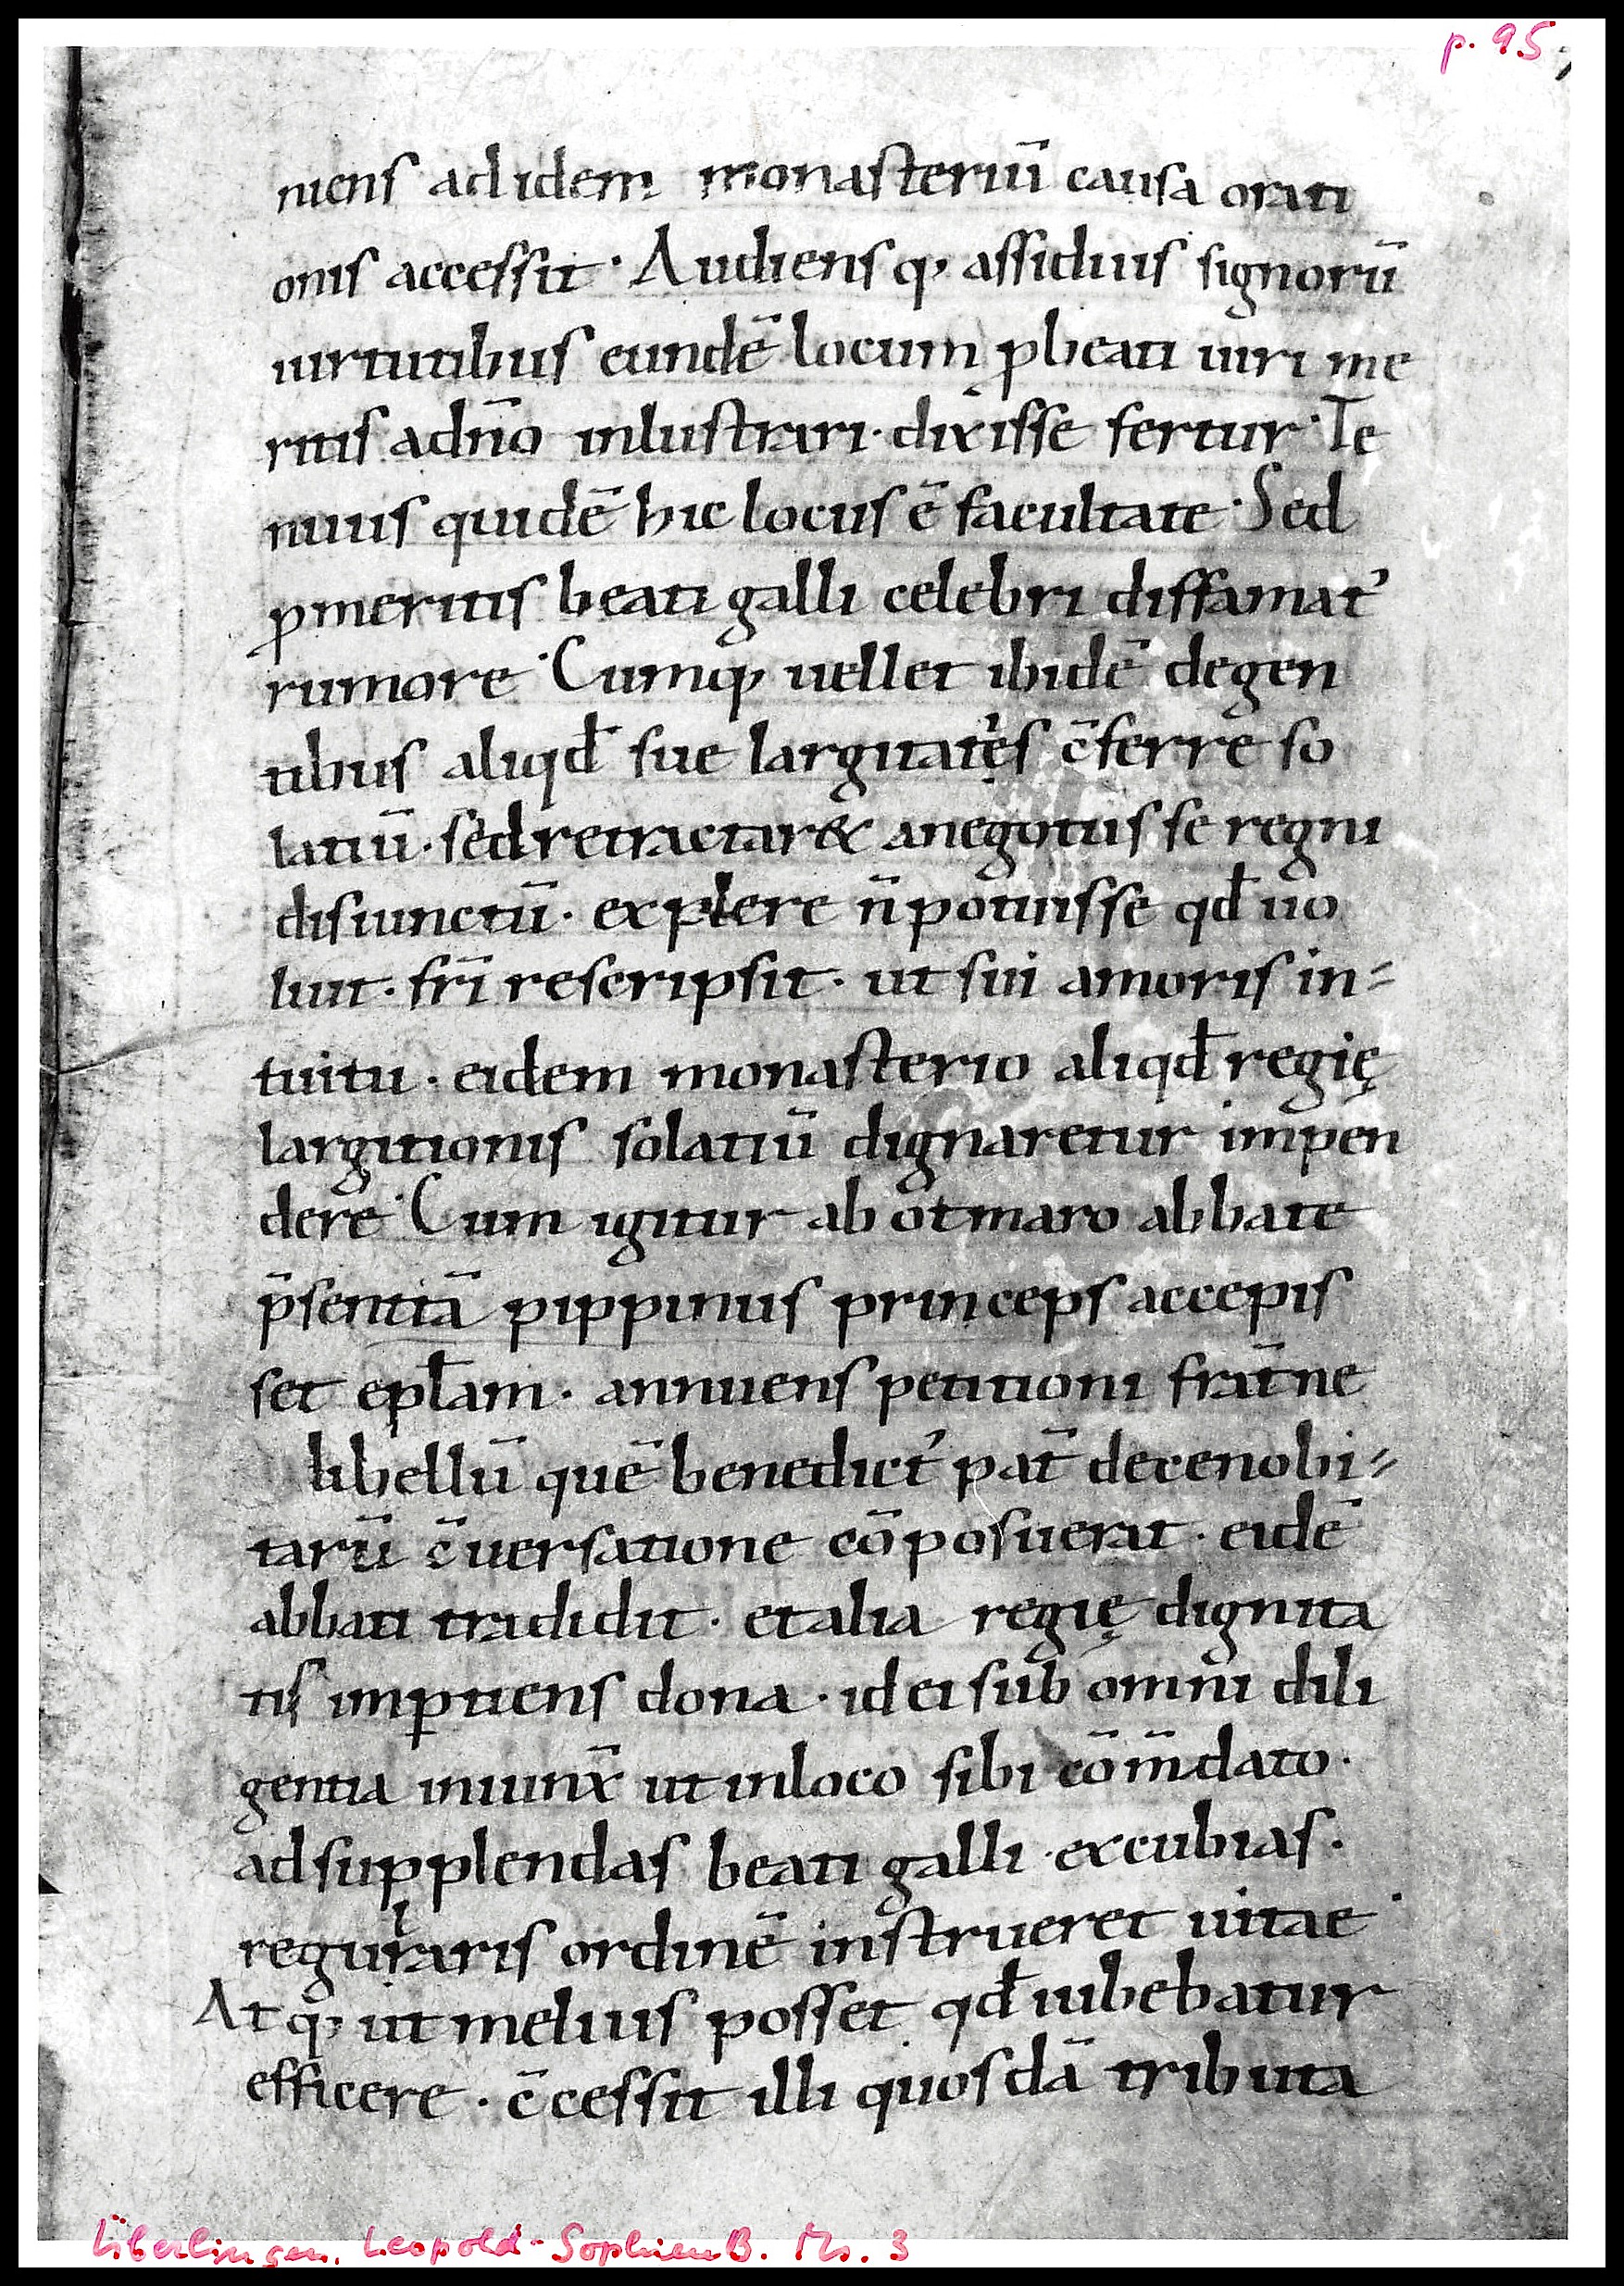 p. 95,
niens ad idem monasteriū causa orati
onis accessit · Audiensq; assiduis signorū
uirtutibus eundē locum ꝑ beati uiri me
ritis adn̄o inlustrari · dixisse fertur · Te
nuis quidē hic locus ē facultate · Sed
ꝑ meritis beati galli celebri diffamat᾿
rumore · Cumq; uellet ibidē degen
tibus aliqd̄ sue largitatęs c̄ferre so
latiū · sed retractar& a negotiis se regni
disiunctū · explere n̄ potuisse qd̄ uo
luit · fr̄i rescripsit · ut sui amoris in-
tuitu · eidem monasterio aliqd̄ regię
largitionis solatiū dignaretur impen
dere · Cum igitur ab otmaro abbate
p̄sentiā pippinus princeps accepis
set ep̄lam · annuens petitioni frat̄ne
libellū quē benedict᾿ pat̄ de cenobi-
tarū c̄uersatione cō posuerat · eidē
abbati tradidit · et alia regię dignita
tis imꝑtiens dona · id ei sub omni dili
gentia iniunx̄ ut in loco sibi cōm̄dato ·
ad supplendas beati galli excubias ·
reguraris l ordinē instrueret uitae ·
Atq; ut melius posset qd̄ iubebatur
efficere · c̄cessit illi quosdā tributa
Überlingen, Leopold-SophienB. Ms. 3